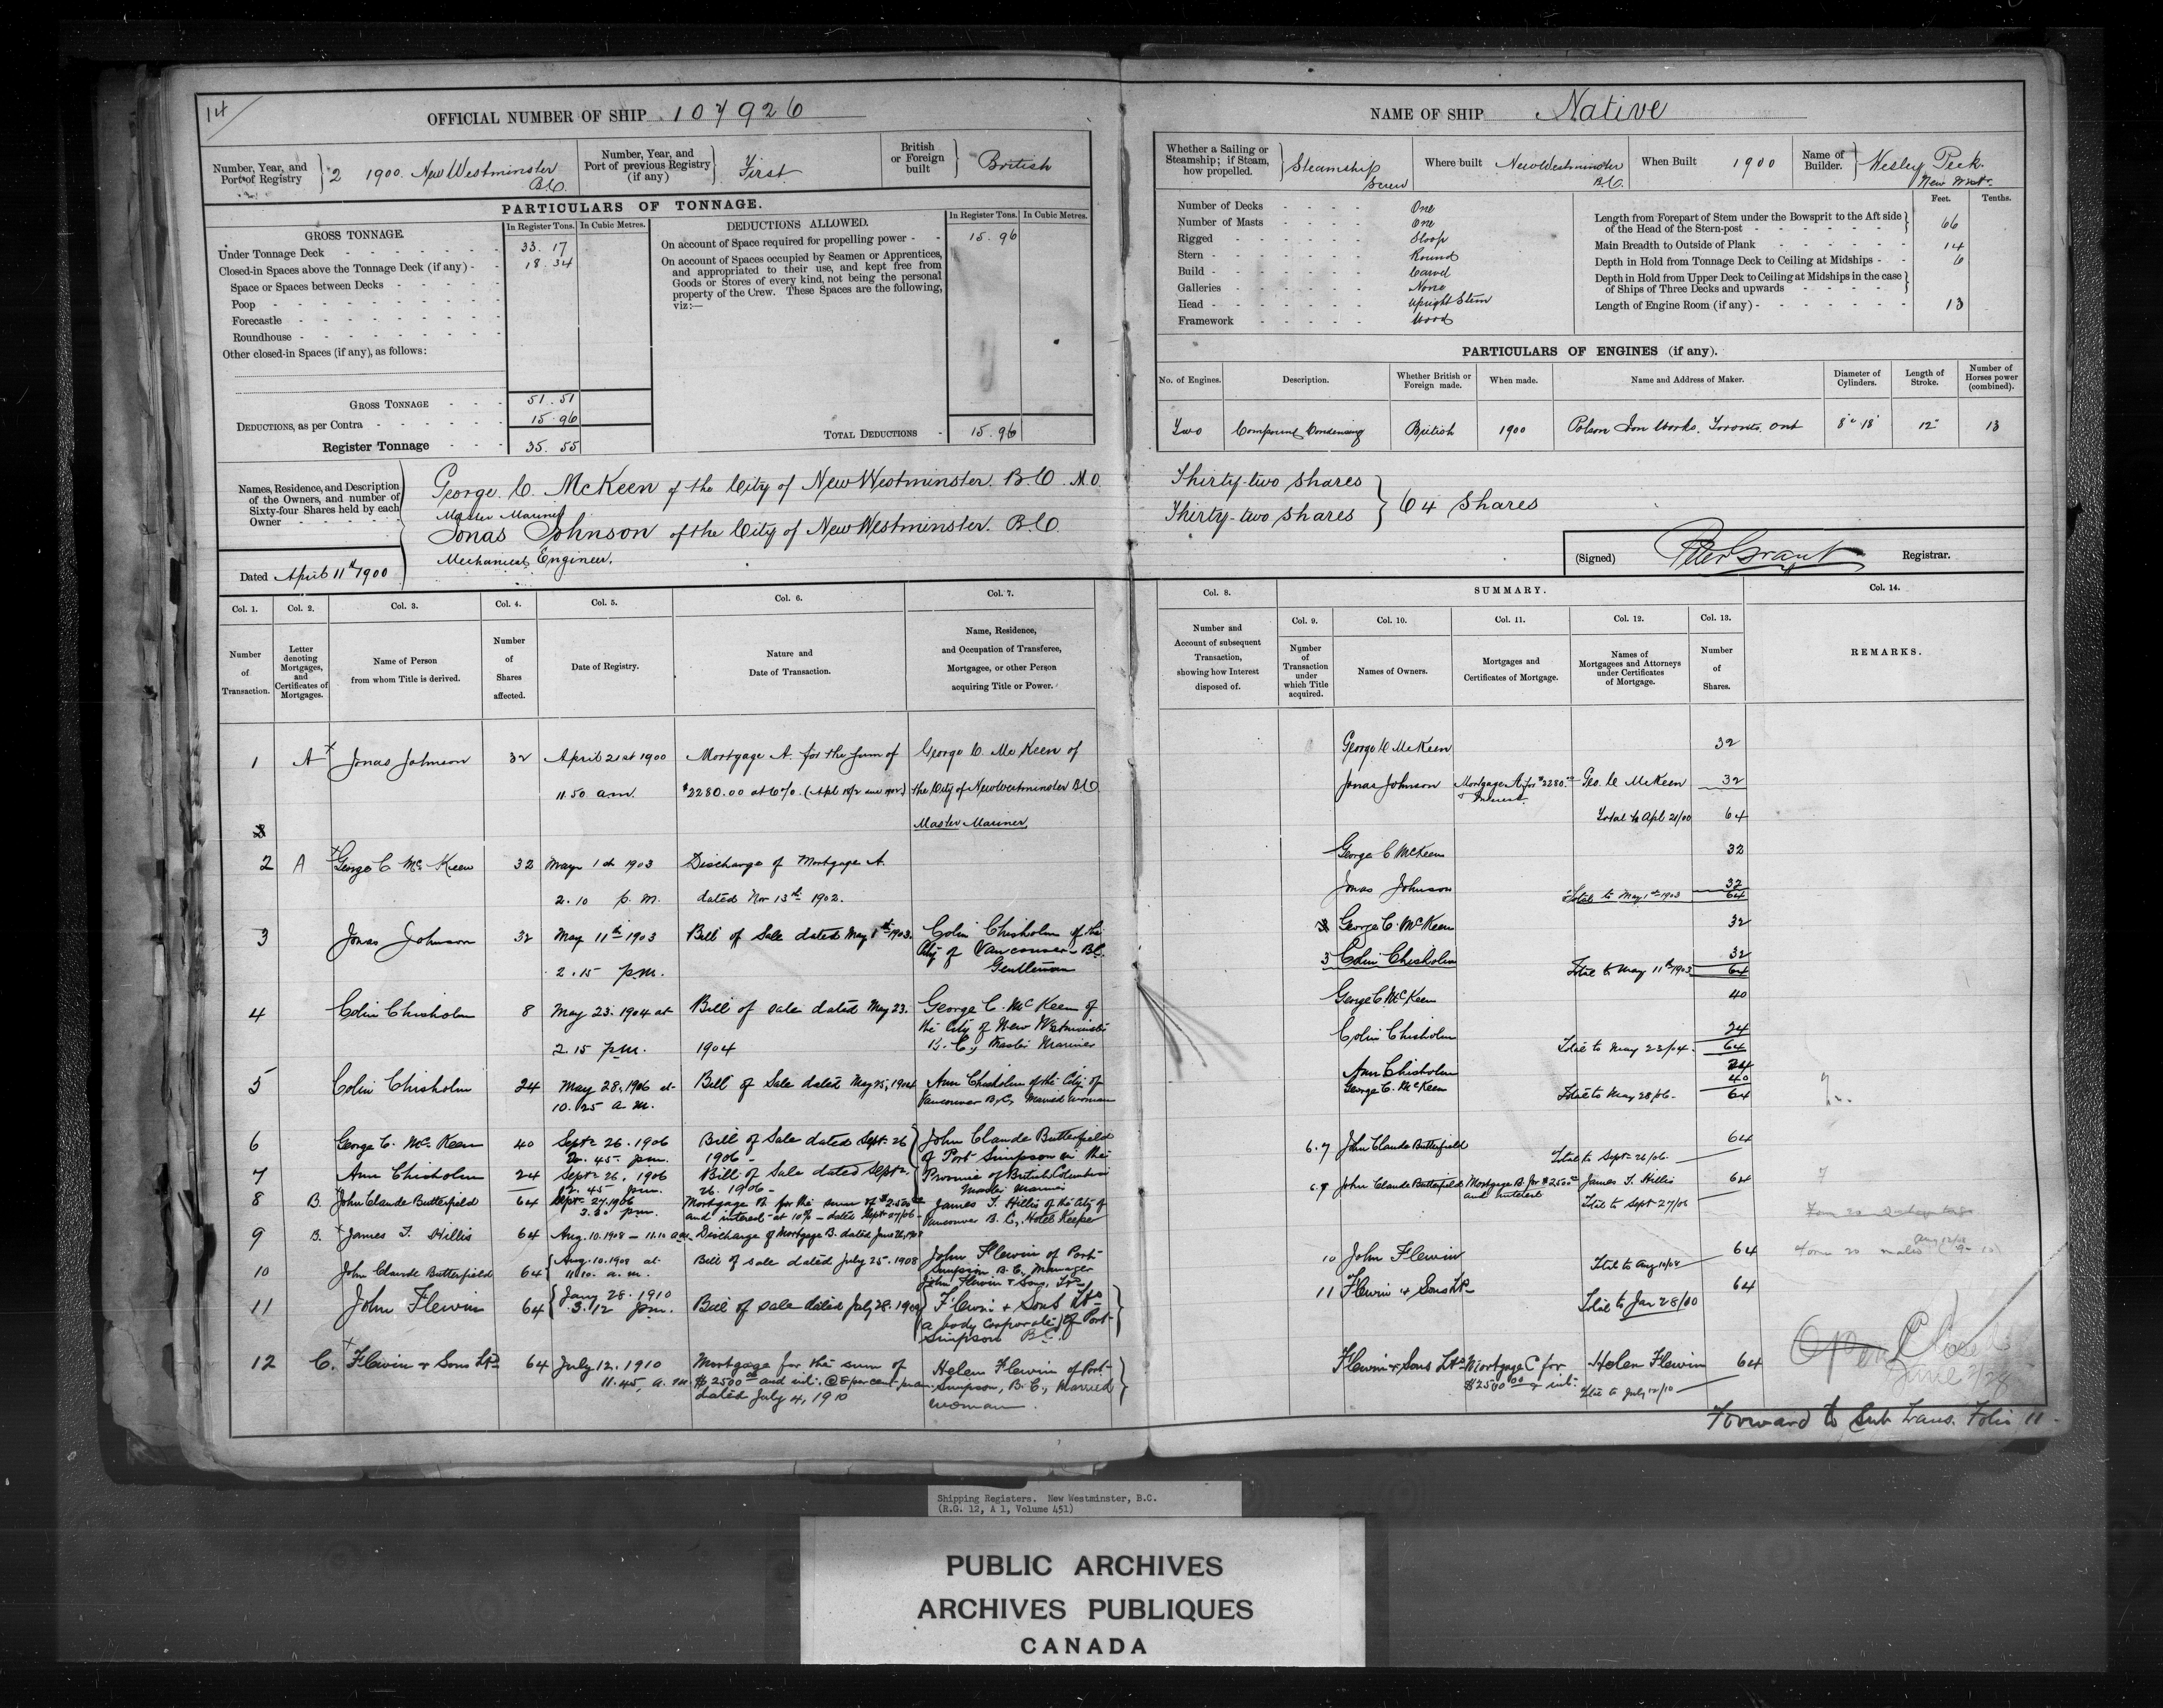 14
OFFICIAL NUMBER OF SHIP 107926
Number, Year, and Port of Registry } 2 1900. New Westminster B.C.
Number, Year, and Port of previous Registry (if any) } First
British or Foreign built } British
PARTICULARS OF TONNAGE.
GROSS TONNAGE. In Register Tons. In Cubic Metres.
Under Tonnage Deck 33.17
Closed-in Spaces above the Tonnage Deck (if any) 18.34
Space or Spaces between Decks
Poop
Forecastle
Roundhouse
Other closed-in Spaces (if any), as follows:
GROSS TONNAGE 51.51
DEDUCTIONS, as per Contra 15.96
Register Tonnage 35.55
DEDUCTIONS ALLOWED. In Register Tons. In Cubic Metres.
On account of Space required for propelling power - 15.96
On account of Spaces occupied by Seamen or Apprentices,
and appropriated to their use, and kept free from
Goods or Stores of every kind, not being the personal
property of the Crew. These Spaces are the following,
viz:—
TOTAL DEDUCTIONS 15.96
Names, Residence, and Description
of the Owners, and number of
Sixty-four Shares held by each
Owner
George C. McKeen of the City of New Westminster. B.C.
Master Mariner
Jonas Johnson of the City of New Westminster. B.C.
Mechanical Engineer.
Dated April 11th 1900
NAME OF SHIP Native
Whether a Sailing or Steamship; if Steam, how propelled. } Steamship Screw
Where built New Westminster B.C.
When Built 1900
Name of Builder. } Wesley Peck. New Westr.
Number of Decks One
Number of Masts One
Rigged Sloop
Stern Round
Build Carvel
Galleries None
Head Upright Stem
Framework Wood
Feet. Tenths.
Length from Forepart of Stem under the Bowsprit to the Aft side
of the Head of the Stern-post 66
Main Breadth to Outside of Plank 14
Depth in Hold from Tonnage Deck to Ceiling at Midships 6
Depth in Hold from Upper Deck to Ceiling at Midships in the case
of Ships of Three Decks and upwards
Length of Engine Room (if any) 13
PARTICULARS OF ENGINES (if any).
No. of Engines. Description. Whether British or Foreign made. When made. Name and Address of Maker. Diameter of Cylinders. Length of Stroke. Number of Horses power (combined).
Two Compound Condensing British 1900 Polson Iron Works. Toronto. Ont 8" 18" 12" 13
Thirty-two shares
Thirty-two shares } 64 Shares
(Signed) Peter Grant Registrar.
Col. 1. Col. 2. Col. 3. Col. 4. Col. 5. Col. 6. Col. 7.
Number of Transaction.
Letter denoting Mortgages, and Certificates of Mortgages.
Name of Person from whom Title is derived.
Number of Shares affected.
Date of Registry.
Nature and Date of Transaction.
Name, Residence, and Occupation of Transferee, Mortgagee, or other Person acquiring Title or Power.
1 A Jonas Johnson 32 April 21st 1900 Mortgage A. for the sum of George C. McKeen of
11.50 a.m. $2280.00 at 6%. the City of New Westminster B.C.
Master Mariner
2 A George C McKeen 32 May 1st 1903 Discharge of Mortgage A.
2.10 p.m. dated Nov 13th 1902.
3 Jonas Johnson 32 May 11th 1903 Bill of Sale dated May 1st 1903. Colin Chisholm of the
2.15 p.m. City of Vancouver B.C.
Gentleman
4 Colin Chisholm 8 May 23. 1904 at Bill of sale dated May 23. George C. McKeen of
2.15 p.m. 1904 the City of New Westminster
B.C., Master Mariner
5 Colin Chisholm 24 May 28, 1906 at Bill of Sale dated May 25, 1904 Ann Chisholm of the City of
10.25 a.m. Vancouver B.C. Married woman
6 George C. McKeen 40 Septr 26. 1906 Bill of Sale dated Sept. 26 John Claude Butterfield
2.45 p.m. 1906 of Port Simpson in the
7 Ann Chisholm 24 Septr 26. 1906 Bill of Sale dated Septr. Province of British Columbia
2.45 p.m. 26. 1906 Master Mariner
8 B. John Claude Butterfield 64 Septr 27. 1906 Mortgage B. for the sum of $2500.00 James T. Hillis of the City of
3.30 p.m. and interest at 10% dated Sept 27/06 Vancouver B.C., Hotel Keeper
9 B. James T. Hillis 64 Aug. 10. 1908 — 11.10 a.m. Discharge of Mortgage B. dated June 26, 1908
10 John Claude Butterfield 64 Aug. 10. 1908 at Bill of sale dated July 25. 1908 John Flewin of Port
11.10. a.m. Simpson B.C., Manager
John Flewin & Sons, Ltd
11 John Flewin 64 Jany 28. 1910 Bill of sale dated July 28. 1909 Flewin & Sons Ltd
3.12 p.m. (a body corporate) of Port
Simpson B.C.
12 C. Flewin & Sons Ltd 64 July 12. 1910 Mortgage for the sum of Helen Flewin of Port
11.45, a.m. $2500.00 and int. @ 8 per cent. p. an. Simpson, B.C., Married
dated July 4, 1910 woman.
Col. 8. SUMMARY. Col. 14.
Col. 9. Col. 10. Col. 11. Col. 12. Col. 13.
Number and Account of subsequent Transaction, showing how Interest disposed of.
Number of Transaction under which Title acquired.
Names of Owners.
Mortgages and Certificates of Mortgage.
Names of Mortgagees and Attorneys under Certificates of Mortgage.
Number of Shares.
REMARKS.
George C McKeen 32
Jonas Johnson Mortgage A for $2280.00 & Interest Geo. C. McKeen 32
Total to Apl 21/00 64
George C McKeen 32
Jonas Johnson 32
Total to May 1st 1903 64
George C. McKeen 32
3 Colin Chisholm 32
Total to May 11th 1903 64
George C McKeen 40
Colin Chisholm 24
Total to May 23/04. 64
Ann Chisholm 24
George C. McKeen 40
Total to May 28/06. 64
6.7 John Claude Butterfield 64
Total to Septr 26/06.
6.7 John Claude Butterfield Mortgage B. for $2500.00 and interest James T. Hillis 64
Total to Septr 27/06
10 John Flewin 64
Total to Aug 10/08
11 Flewin & Sons Ltd 64
Total to Jan 28/10
Flewin & Sons Ltd Mortgage C for $2500.00 & int. Helen Flewin 64
Total to July 12/10
Open Closed
June 2/28
Forward to Sub Trans. Folio 11.
Shipping Registers. New Westminster, B.C.
(R.G. 12, A 1, Volume 451)
PUBLIC ARCHIVES
ARCHIVES PUBLIQUES
CANADA